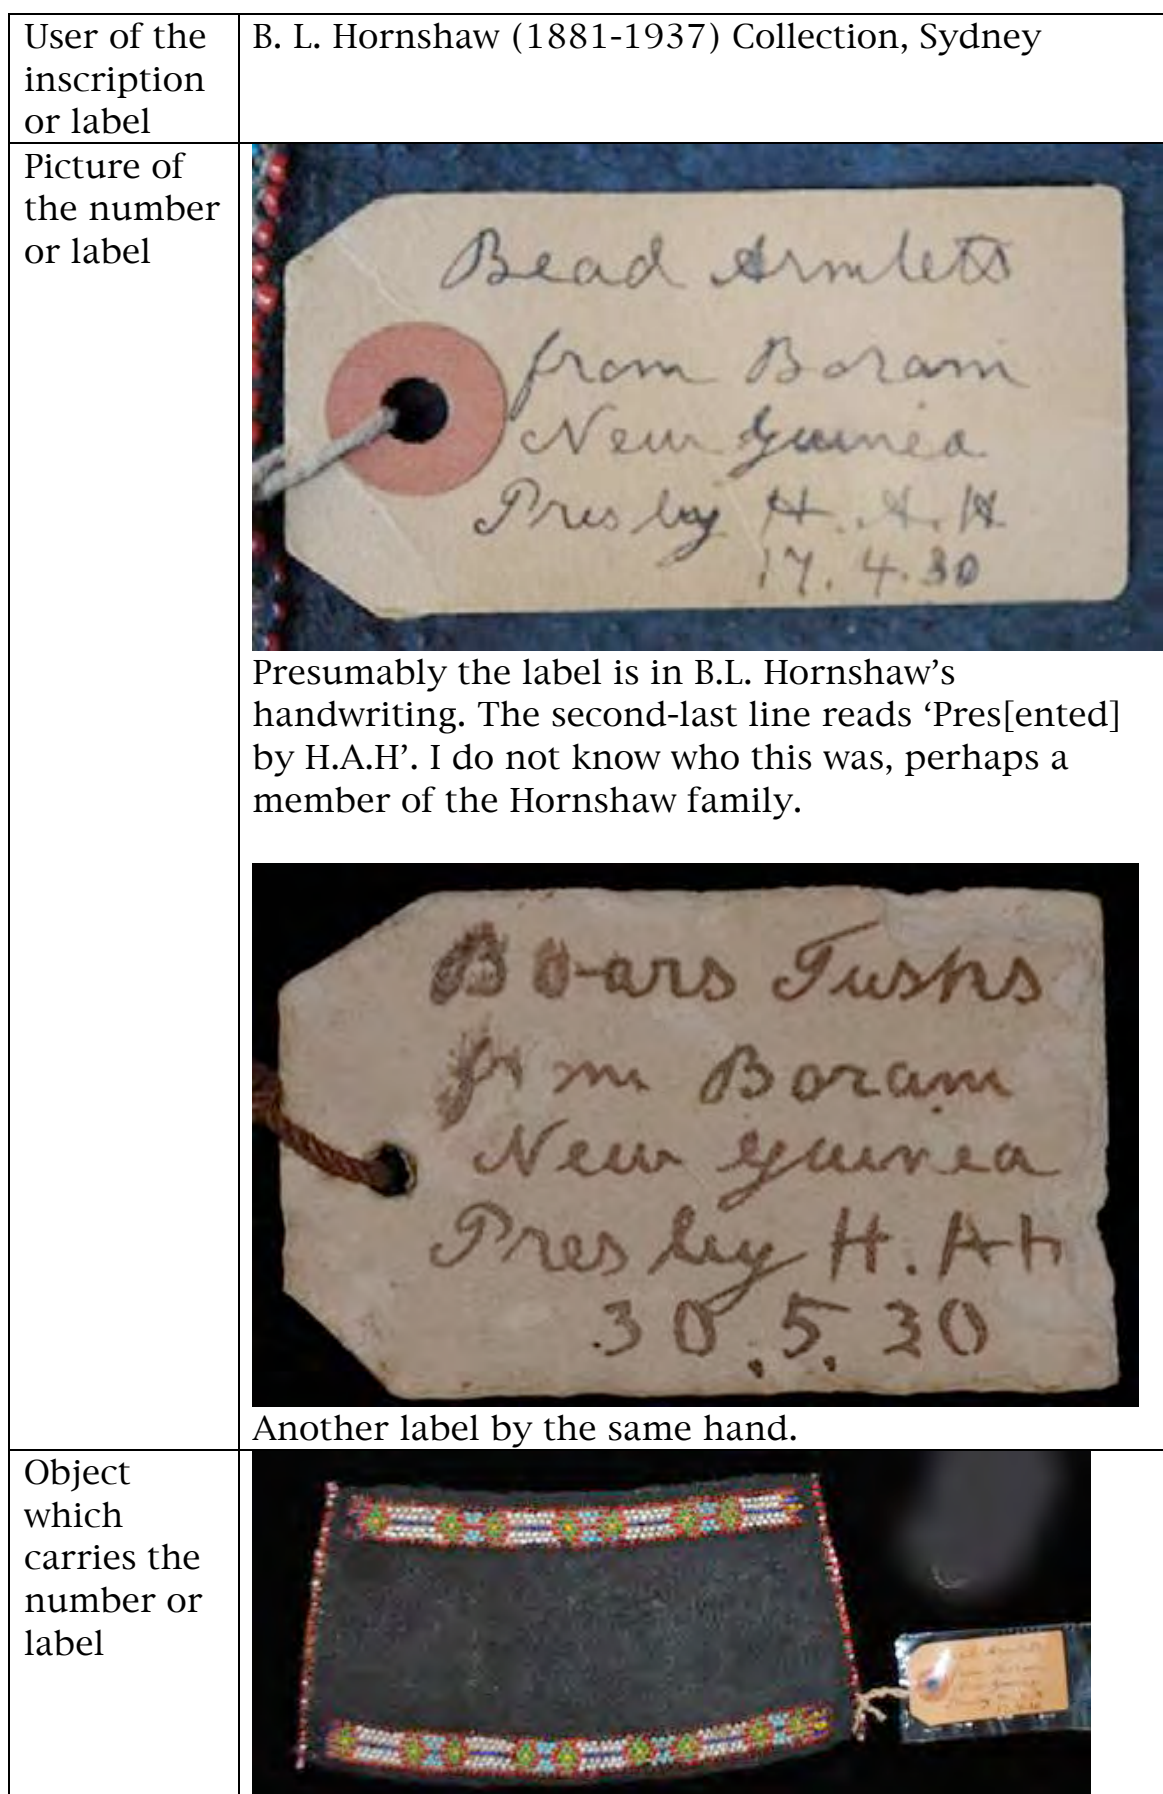 User of the
inscription
or label
B. L. Hornshaw (1881-1937) Collection, Sydney
Picture of
the number
or label
Bead Armlets
from Boram
New Guinea
Pres by H. A. H
17. 4. 30
Presumably the label is in B.L. Hornshaw’s
handwriting. The second-last line reads ‘Pres[ented]
by H.A.H’. I do not know who this was, perhaps a
member of the Hornshaw family.
Boars Tusks
from Boram
New Guinea
Pres by H. A H
30. 5. 30
Another label by the same hand.
Object
which
carries the
number or
label